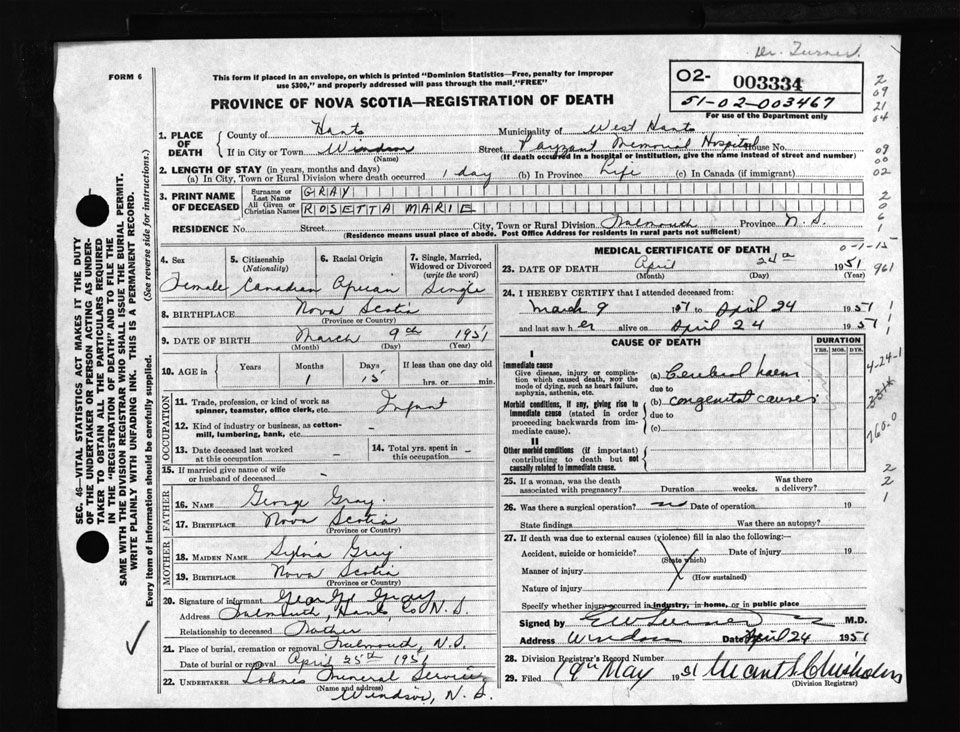 Dr. Turner
FORM 6
This form if placed in an envelope, on which is printed "Dominion Statistics—Free, penalty for improper
use $300," and properly addressed will pass through the mail, "FREE"
PROVINCE OF NOVA SCOTIA—REGISTRATION OF DEATH
O2- 003334
51-02-003467
For use of the Department only
2
09
21
04
09
00
02
2
0
6
1
SEC. 46—VITAL STATISTICS ACT MAKES IT THE DUTY
OF THE UNDERTAKER OR PERSON ACTING AS UNDER-
TAKER TO OBTAIN ALL THE PARTICULARS REQUIRED
IN THE "REGISTRATION OF DEATH" AND TO FILE THE
SAME WITH THE DIVISION REGISTRAR WHO SHALL ISSUE THE BURIAL PERMIT.
WRITE PLAINLY WITH UNFADING INK. THIS IS A PERMANENT RECORD.
Every item of information should be carefully supplied. (See reverse side for instructions.)
1. PLACE OF DEATH
County of Hants Municipality of West Hants
If in City or Town Windsor Street Payzant Memorial Hospital House No.
(Name) (If death occurred in a hospital or institution, give the name instead of street and number)
2. LENGTH OF STAY (in years, months and days)
(a) In City, Town or Rural Division where death occurred 1 day (b) In Province Life (c) In Canada (if immigrant)
3. PRINT NAME OF DECEASED
Surname or Last Name GRAY
All Given or Christian Names ROSETTA MARIE
RESIDENCE No. Street City, Town or Rural Division Falmouth Province N.S.
(Residence means usual place of abode. Post Office Address for residents in rural parts not sufficient)
4. Sex 5. Citizenship (Nationality) 6. Racial Origin 7. Single, Married, Widowed or Divorced (write the word)
Female Canadian African Single
8. BIRTHPLACE Nova Scotia
(Province or Country)
9. DATE OF BIRTH March 9th 1951
(Month) (Day) (Year)
10. AGE in Years Months Days If less than one day old
1 15 hrs. or min.
OCCUPATION
11. Trade, profession, or kind of work as spinner, teamster, office clerk, etc. Infant
12. Kind of industry or business, as cotton-mill, lumbering, bank, etc. -
13. Date deceased last worked at this occupation - 14. Total yrs. spent in this occupation -
15. If married give name of wife or husband of deceased -
FATHER
16. NAME George Gray
17. BIRTHPLACE Nova Scotia
(Province or Country)
MOTHER
18. MAIDEN NAME Sylvia Gray
19. BIRTHPLACE Nova Scotia
(Province or Country)
20. Signature of informant George Gray
Address Falmouth, Hants Co N.S.
Relationship to deceased Father
21. Place of burial, cremation or removal Falmouth, N.S.
Date of burial or removal April 25th 1951
22. UNDERTAKER Lohnes Funeral Service
(Name and address)
Windsor, N.S.
MEDICAL CERTIFICATE OF DEATH
23. DATE OF DEATH April 24th 1951
(Month) (Day) (Year)
0-1-15
961
24. I HEREBY CERTIFY that I attended deceased from:
March 9 1951 to April 24 1951
and last saw her alive on April 24 1951
1
1
1
CAUSE OF DEATH
DURATION
YRS. MOS. DYS.
I
Immediate cause
Give disease, injury or complication which caused death, NOT the mode of dying, such as heart failure, asphyxia, asthenia, etc.
(a) Cerebral haem
due to
Morbid conditions, if any, giving rise to immediate cause (stated in order proceeding backwards from immediate cause).
(b) congenital causes
due to
(c)
II
Other morbid conditions (if important) contributing to death but not causally related to immediate cause.
4-24-1
760.0
2
2
1
25. If a woman, was the death associated with pregnancy? Duration weeks. Was there a delivery?
26. Was there a surgical operation? Date of operation 19
State findings Was there an autopsy?
27. If death was due to external causes (violence) fill in also the following:—
Accident, suicide or homicide? Date of injury 19
(State which)
Manner of injury
(How sustained)
Nature of injury
Specify whether injury occurred in industry, in home, or in public place
Signed by EW Turner M.D.
Address Windsor Date April 24 1951
28. Division Registrar's Record Number
29. Filed 19th May 1951
(Division Registrar)